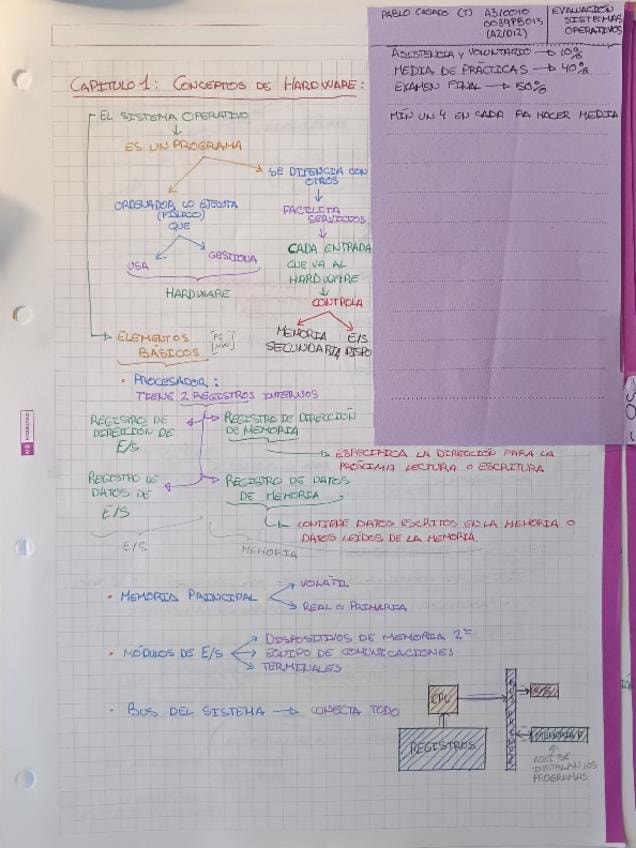 PABLO CASADO (T) A3/0010
003APB013
(A2/D12)
EVALUACIÓN
SISTEMAS
OPERATIVOS
ASISTENCIA Y VOLUNTARIO → 10%
MEDIA DE PRÁCTICAS → 40%
EXAMEN FINAL → 50%
MÍN UN 4 EN CADA PA HACER MEDIA
CAPITULO 1: CONCEPTOS DE HARDWARE:
EL SISTEMA OPERATIVO
ES UN PROGRAMA
ORDENADOR LO EJECUTA
(FÍSICO)
QUE
USA
GESTIONA
HARDWARE
SE DIFENCIA CON
OTROS
FACILITA
SERVICIOS
CADA ENTRADA
QUE VA AL
HARDWARE
CONTROLA
MEMORIA
SECUNDARIA
E/S
DISPO
ELEMENTOS
BÁSICOS
• PROCESADOR:
TIENE 2 REGISTROS INTERNOS
REGISTRO DE
DIRECIÓN DE
E/S
REGISTRO DE DIRECCIÓN
DE MEMORIA
ESPECIFICA LA DIRECCIÓN PARA LA
PRÓXIMA LECTURA O ESCRITURA
REGISTRO DE
DATOS DE
E/S
REGISTRO DE DATOS
DE MEMORIA
CONTIENE DATOS ESCRITOS EN LA MEMORIA O
DATOS LEÍDOS DE LA MEMORIA.
E/S
MEMORIA
• MEMORIA PRINCIPAL
VOLÁTIL
REAL O PRIMARIA
• MÓDULOS DE E/S
DISPOSITIVOS DE MEMORIA 2ª
EQUIPO DE COMUNICACIONES
TERMINALES
• BUS DEL SISTEMA → CONECTA TODO
CPU
REGISTROS
E/S
MEMORIA P.
AQUÍ SE
INSTALAN LOS
PROGRAMAS